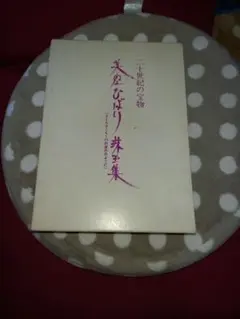 二十世紀の宝物
美空ひばり
珠玉集